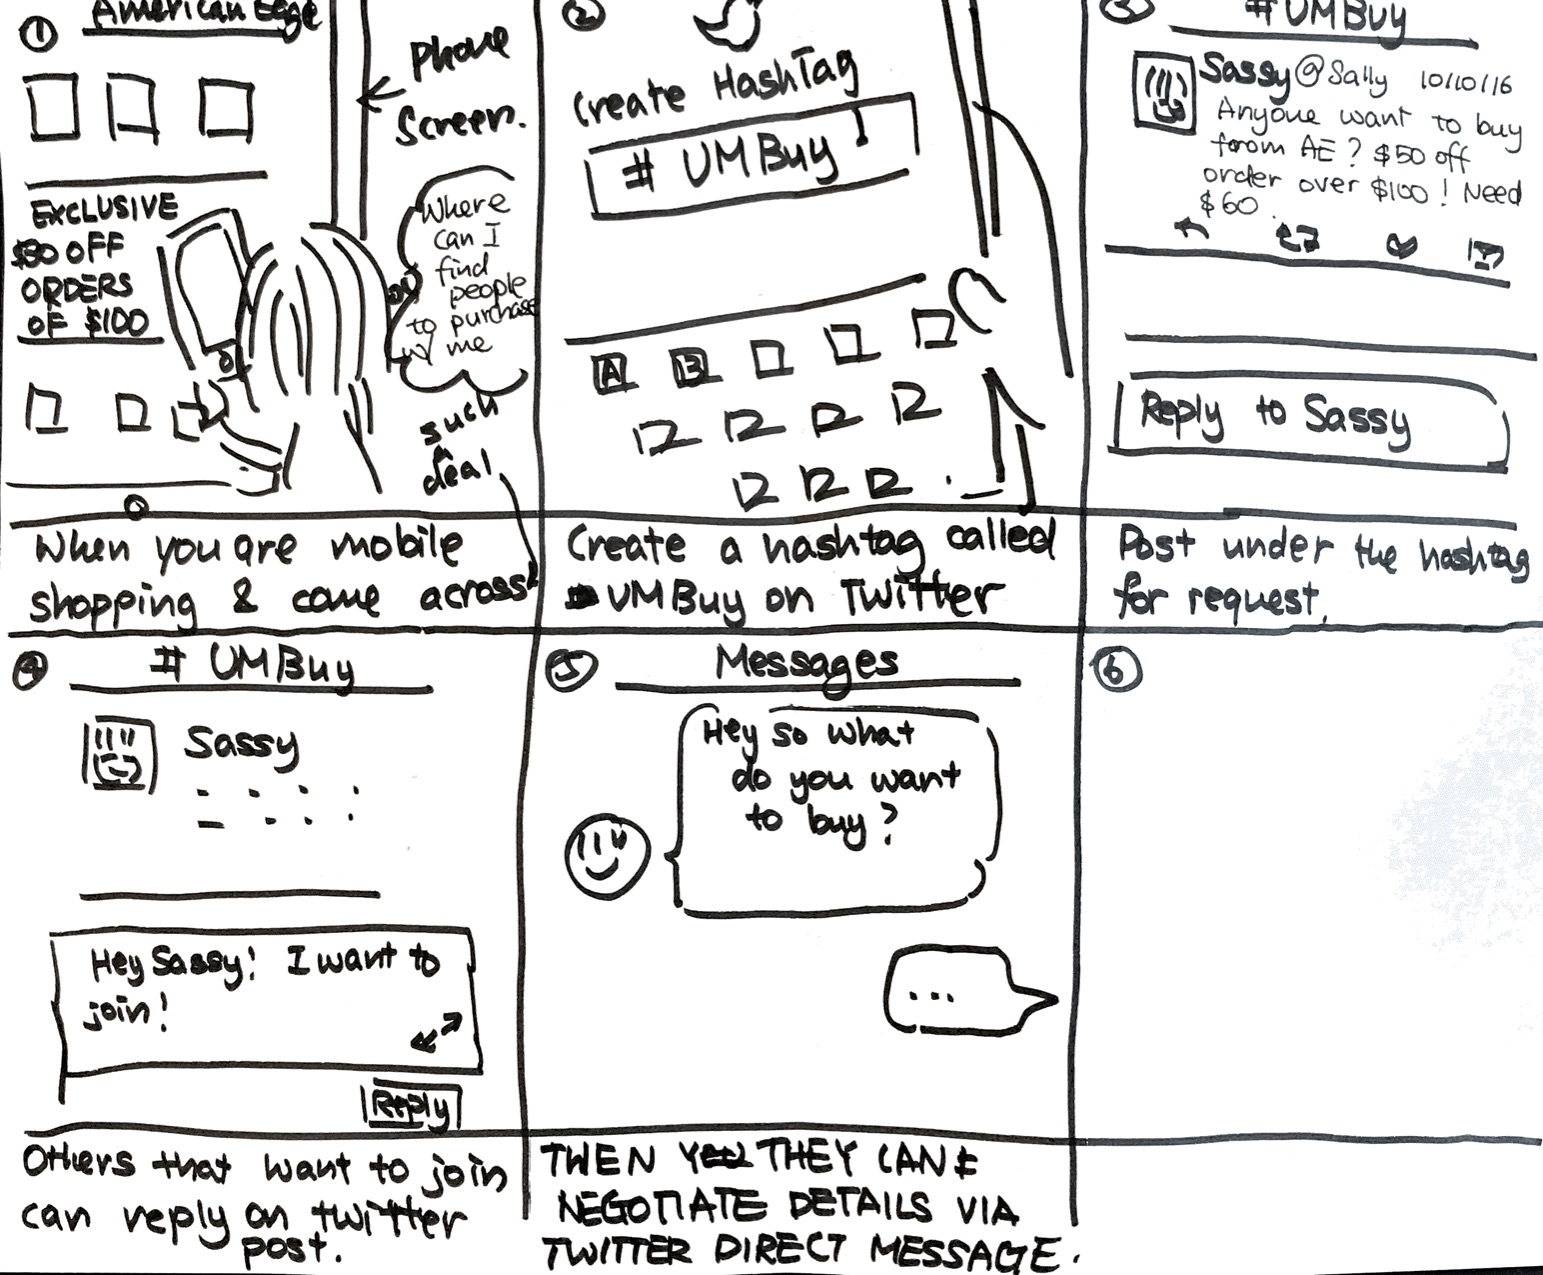 ①
American Edge
Phone
Screen.
EXCLUSIVE
$30 OFF
ORDERS
OF $100
Where
can I
find
people
to purchase
w/ me
such
deal
When you are mobile
shopping & come across
②
Create HashTag
# UMBuy
A B
Create a hashtag called
UMBuy on Twitter
③
#UMBuy
Sassy @Sally 10/10/16
Anyone want to buy
from AE? $50 off
order over $100! Need
$60.
Reply to Sassy
Post under the hashtag
for request.
④
# UMBuy
Sassy
Hey Sassy! I want to
join!
Reply
Others that want to join
can reply on twitter
post.
⑤
Messages
Hey so what
do you want
to buy?
...
THEN THEY CAN
NEGOTIATE DETAILS VIA
TWITTER DIRECT MESSAGE.
⑥